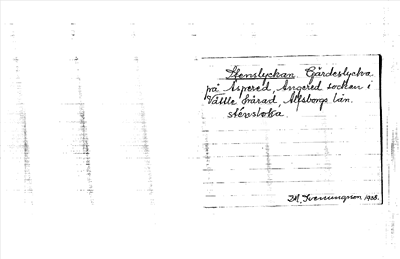 Stenslyckan. Gärdeslycka
på Aspered, Angered socken i
Vättle härad, Älfsborgs län.
stênsløka
M. Svenungsson 1938.